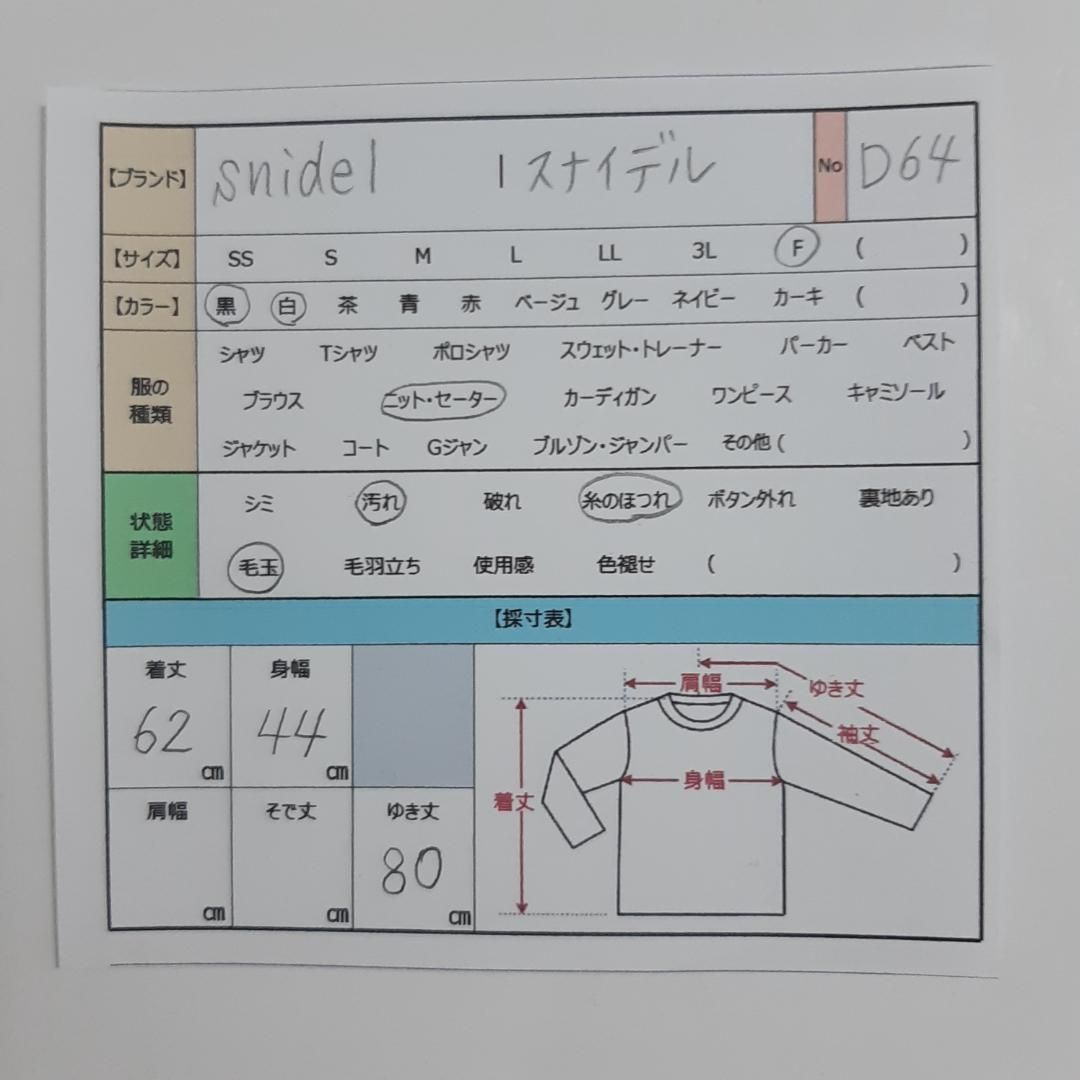 【ブランド】 snidel | スナイデル No D64
【サイズ】 SS S M L LL 3L F ( )
【カラー】 黒 白 茶 青 赤 ベージュ グレー ネイビー カーキ ( )
服の種類
シャツ Tシャツ ポロシャツ スウェット・トレーナー パーカー ベスト
ブラウス ニット・セーター カーディガン ワンピース キャミソール
ジャケット コート Gジャン ブルゾン・ジャンパー その他 ( )
状態詳細
シミ 汚れ 破れ 糸のほつれ ボタン外れ 裏地あり
毛玉 毛羽立ち 使用感 色褪せ ( )
【採寸表】
着丈 身幅
62 cm 44 cm
肩幅 そで丈 ゆき丈
cm cm 80 cm
肩幅 ゆき丈
袖丈
身幅
着丈